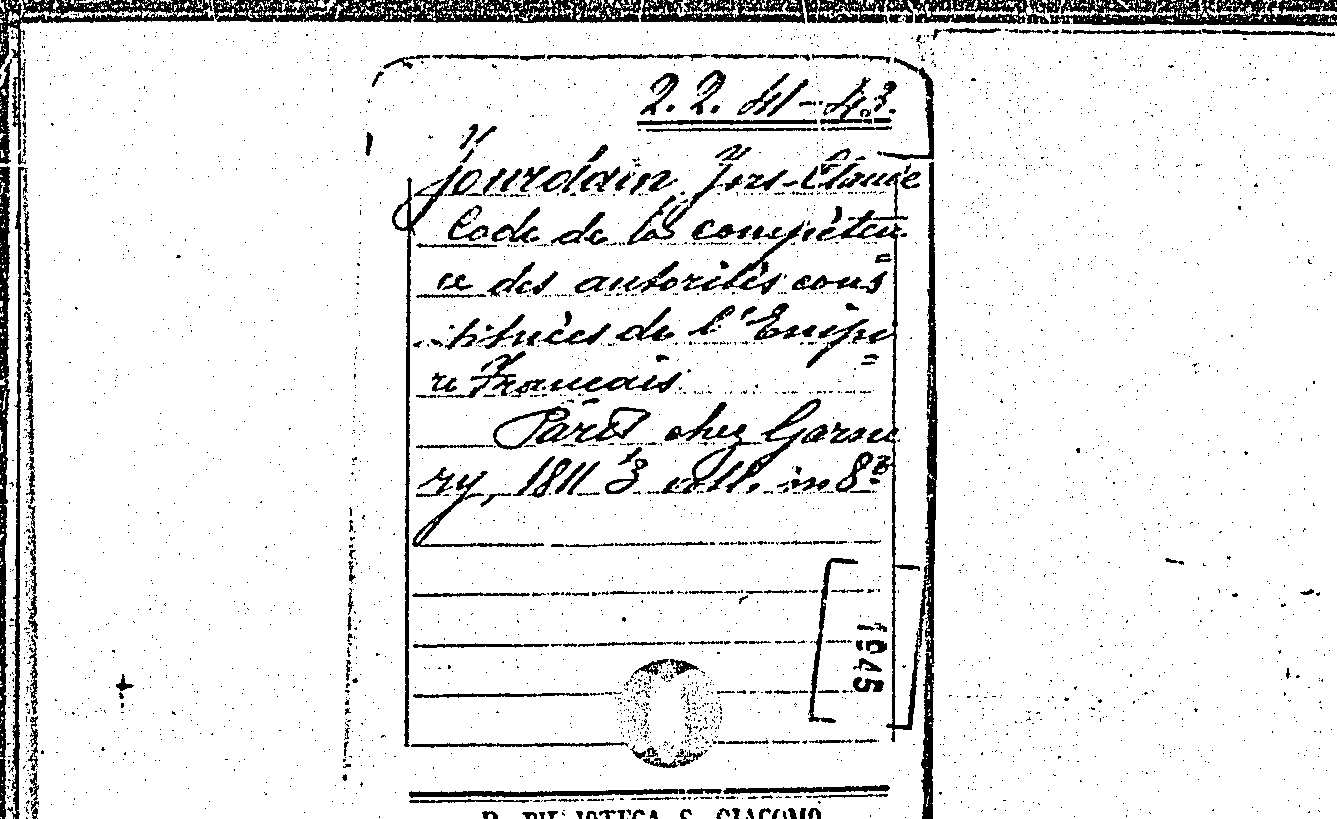 2. 2. 41-43.
Jourdain Yves-Claude
Code de la compéten
ce des autorités cons=
titueés de l'Empi
re Français =
Paris chez Garne
ry, 1811 3 voll. in 8º
1945
R. BIBLIOTECA S. GIACOMO